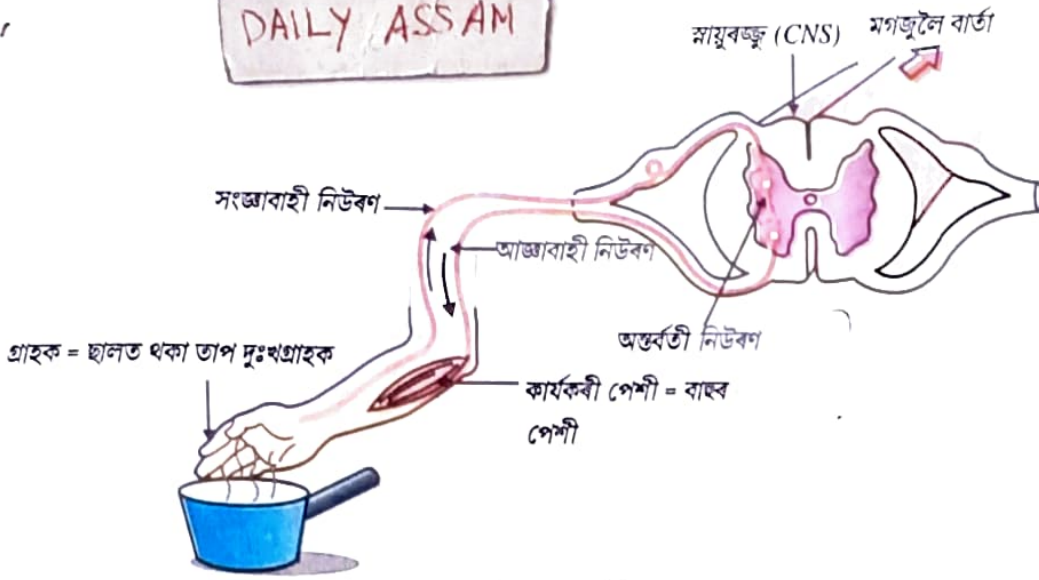 DAILY ASSAM
স্নায়ুৰজ্জু (CNS)
মগজুলৈ বাৰ্তা
সংজ্ঞাবাহী নিউৰণ
আজ্ঞাবাহী নিউৰণ
অন্তৰ্বৰ্তী নিউৰণ
গ্ৰাহক = ছালত থকা তাপ দুঃখগ্ৰাহক
কাৰ্যকৰী পেশী = বাহুৰ
পেশী